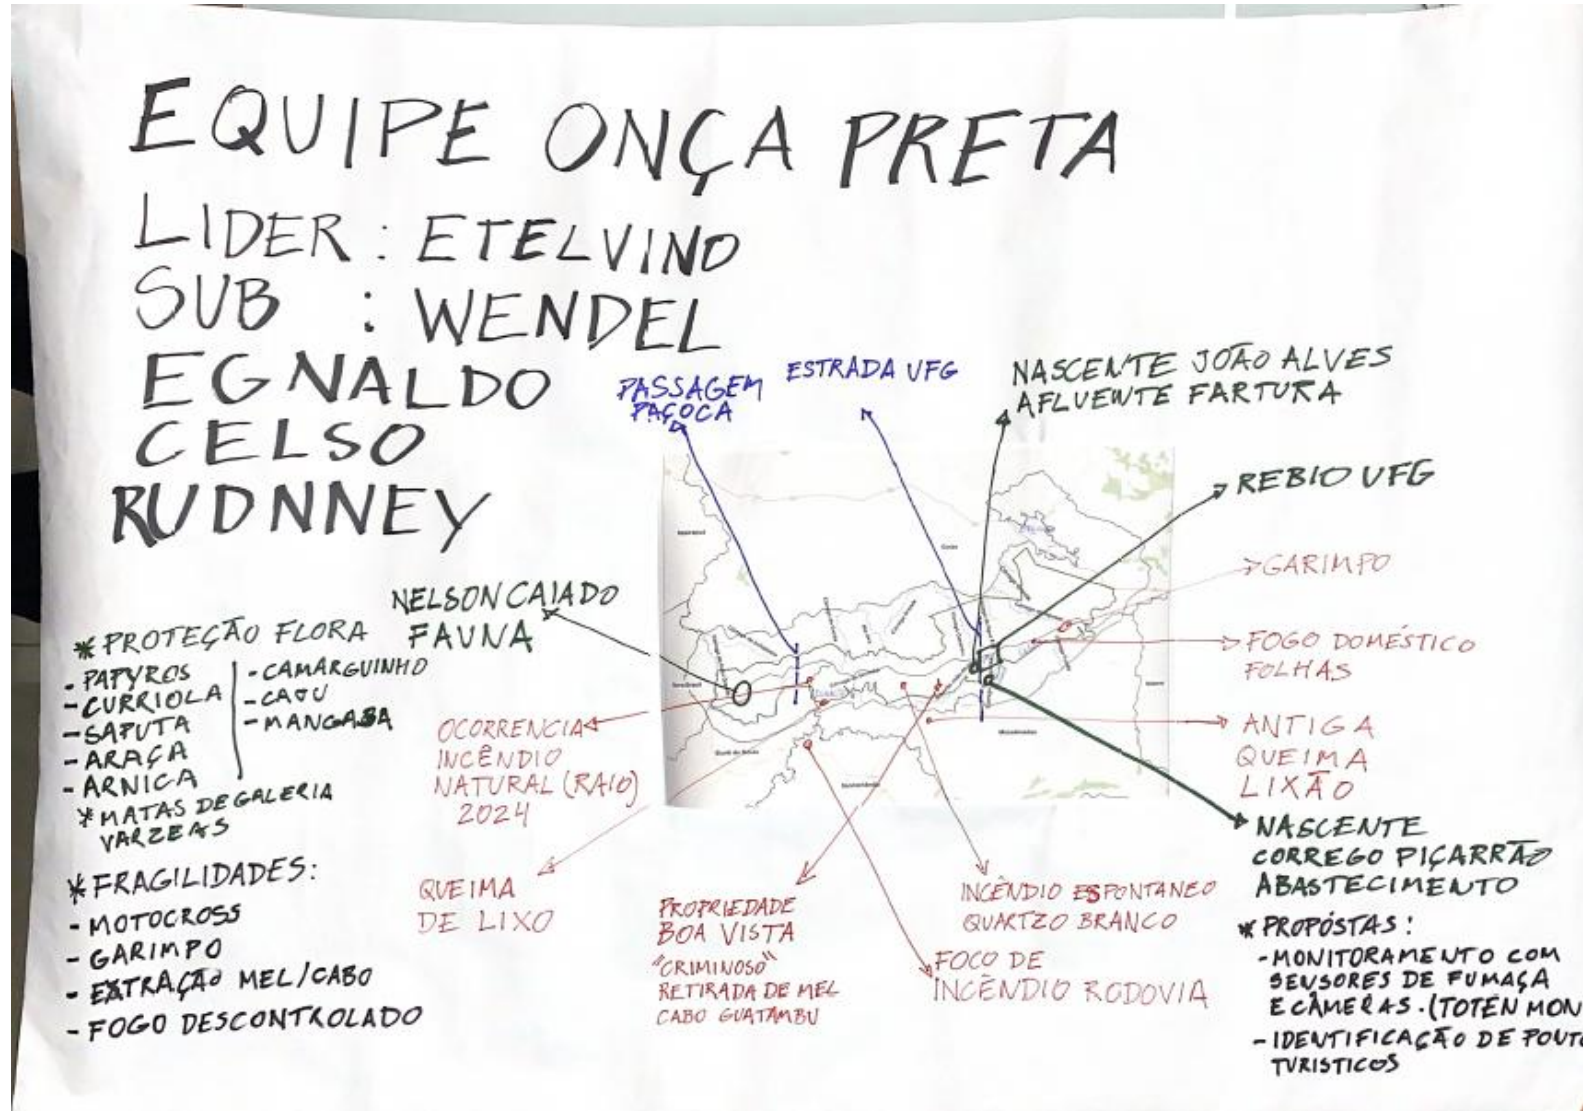 EQUIPE ONÇA PRETA
LIDER : ETELVINO
SUB : WENDEL
EGNALDO
CELSO
RUDNNEY
PASSAGEM
PAÇOCA
ESTRADA UFG
NASCENTE JOÃO ALVES
AFLUENTE FARTURA
REBIO UFG
GARIMPO
FOGO DOMÉSTICO
FOLHAS
ANTIGA
QUEIMA
LIXÃO
NASCENTE
CORREGO PIÇARRÃO
ABASTECIMENTO
NELSON CAIADO
FAUNA
* PROTEÇÃO FLORA
- PAPYROS
- CURRIOLA
- SAPUTA
- ARAÇA
- ARNICA
- CAMARGUINHO
- CAJU
- MANGABA
* MATAS DE GALERIA
VARZEAS
* FRAGILIDADES:
- MOTOCROSS
- GARIMPO
- EXTRAÇÃO MEL/CABO
- FOGO DESCONTROLADO
OCORRENCIA
INCÊNDIO
NATURAL (RAIO)
2024
QUEIMA
DE LIXO
PROPRIEDADE
BOA VISTA
"CRIMINOSO"
RETIRADA DE MEL
CABO GUATAMBU
INCÊNDIO ESPONTANEO
QUARTZO BRANCO
FOCO DE
INCÊNDIO RODOVIA
* PROPÓSTAS:
- MONITORAMENTO COM
SENSORES DE FUMAÇA
E CÂMERAS. (TOTÉN MON
- IDENTIFICAÇÃO DE PONTO
TURISTICOS